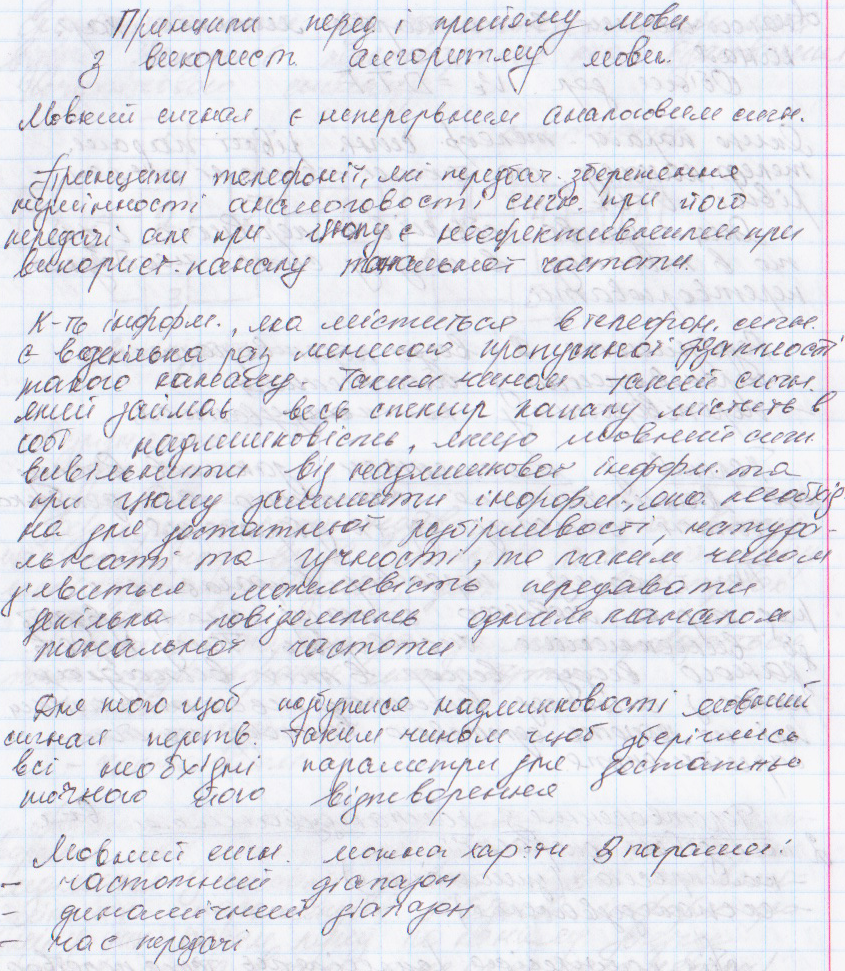 Принципи перед. і прийому мови
з використ. алгоритму мови.
Мовний сигнал є неперервним аналоговим сигн.
Принципи телефонії, які передбач. збереження
незмінності аналоговості сигн. при його
передачі але при цьому є неефективними при
використ. каналу тональної частоти.
К-ть інформ., яка міститься в телефон. сигн.
є в декілька раз меншою пропускної здатності
такого каналу. Таким чином такий сигн.
який займає весь спектр каналу містить в
собі надлишковість, якщо мовний сигн.
вивільнити від надлишкової інформ. та
при цьому залишити інформ., яка необхід
на для достатньої розбірливості, натура-
льності та гучності, то таким чином
з'явиться можливість передавати
декілька повідомлень одним каналом
тональної частоти
Для того щоб позбутися надлишковості мовний
сигнал перетв. таким чином щоб зберіглись
всі необхідні параметри для достатньо
точного його відтворення
Мовний сигн. можна хар-ти 3 парам.:
- частотний діапазон
- динамічний діапазон
- час передачі